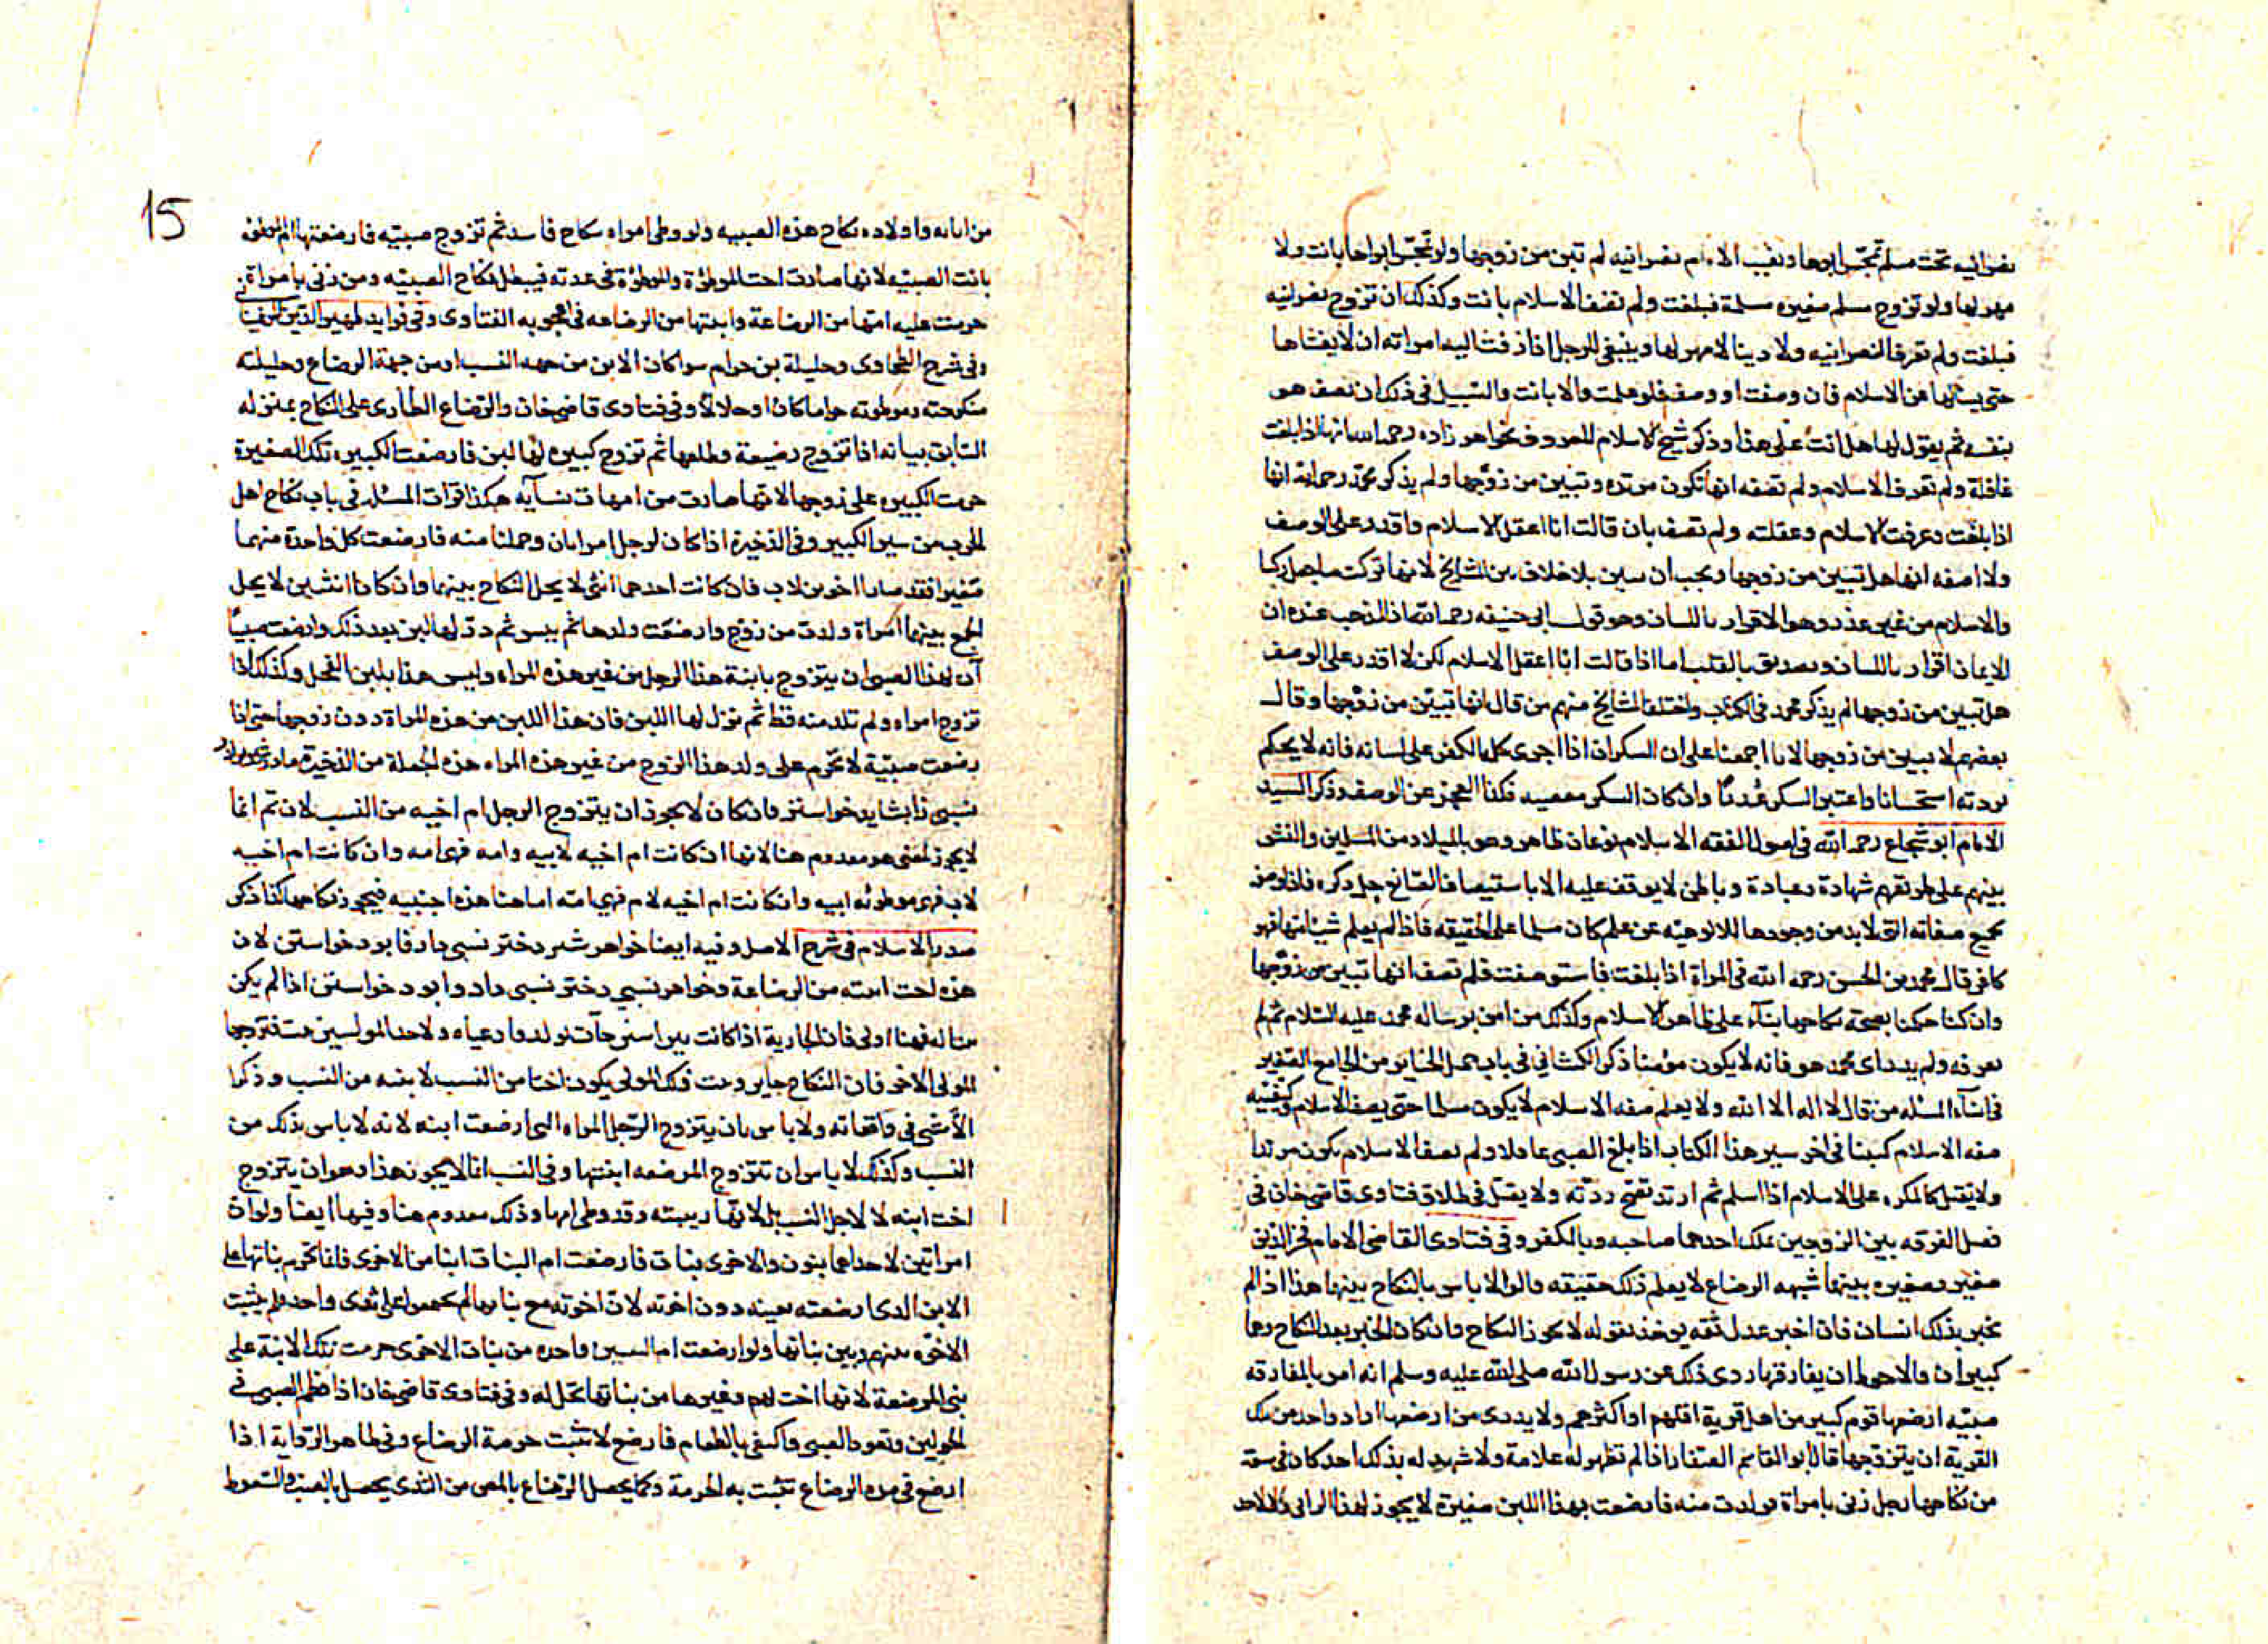 نصرانيه تحت مسلم تمجس ابوها وبقيت الام نصرانيه لم تبن من زوجها ولو تمجس ابواها بانت ولا
مهر لها ولو تزوج مسلم صغيره مسلمة فبلغت ولم تصف الاسلام بانت وكذلك ان تزوج نصرانيه
فبلغت ولم تعرف النصرانيه ولا دينا لا مهر لها وينبغى للرجل اذا زفت اليه امراته ان لا يغشاها
حتى يسالها عن الاسلام فان وصفت او وصف فلو علمت والا بانت والسبيل فى ذلك ان نصف هو
بنفسه ثم يقول لها هل انت على هذا وذكر شيخ الاسلام المعروف بخواهر زاده رحمه الله انها اذا بلغت
عاقلة ولم تعرف الاسلام ولم تصفه انها تكون مرتده وتبين من زوجها ولم يذكر محمد رحمه الله انها
اذا بلغت وعرفت الاسلام وعقلته ولم تصف بان قالت انا اعقل الاسلام واقدر على الوصف
ولا اصفه انها هل تبين من زوجها ويجب ان سين بلا خلاف بين المشايخ لانها تركت ما جعل ركنا
والاسلام من غير عذر وهو الاقرار باللسان وهو قول ابى حنيفه رحمه الله اذ المذهب عنده ان
الايمان اقرار باللسان وتصديق بالقلب اما اذا قالت انا اعقل الاسلام لكن لا اقدر على الوصف
هل تبين من زوجها لم يذكر محمد فى الكتاب واختلف المشايخ منهم من قال انها تبين من زوجها وقال
بعضهم لا تبين من زوجها لانا اجمعنا على ان السكران اذا اجرى كلمة الكفر على لسانه فانه لا يحكم
بردته استحسانا واعتبر السكر عذرًا وان كان السكر معصيه فكذا العجز عن الوصف وذكر السيد
الامام ابو شجاع رحمه الله فى اصول الفقه الاسلام نوعان ظاهر وهو بالميلاد من المسلمين والنشو
بينهم على طريقهم شهادة وعبادة وباطن لا يوقف عليه الا باستيصاف الصانع جل ذكره فاذا وصف
بجميع صفاته التى لا بد من وجودها للالوهيه عن علم كان مسلما على الحقيقه فاذا لم يعلم شيئا منها فهو
كافر قال محمد بن الحسن رحمه الله فى المراة اذا بلغت فاستوصفت فلم تصف انها تبين من زوجها
وان كنا حكمنا بصحة نكاحها بناء على ظاهر الاسلام وكذلك من امن برساله محمد عليه السلام ثم لم
يعرفه ولم يدر اى محمد هو فانه لا يكون مؤمنا ذكر الكشانى فى باب حمل الجناية من الجامع الصغير
فى اثناء المسئله من قال لا اله الا الله ولا يعلم صفه الاسلام لا يكون مسلما حتى يصف الاسلام وكيفيه
صفه الاسلام كتبنا فى اخر سير هذا الكتاب اذا بلغ الصبى عاقلا ولم يصف الاسلام يكون مرتدا
ولا يقتل كالمكره على الاسلام اذا اسلم ثم ارتد تصح ردته ولا يقتل فى طلاق فتاوى قاضى خان فى
فصل الفرقه بين الزوجين بملك احدهما صاحبه وبالكفر وفى فتاوى القاضى الامام فخر الدين
صغير وصغيره بينهما شبهه الرضاع لا يعلم ذلك حقيقه قالوا لا باس بالنكاح بينهما هذا اذا لم
يخبر بذلك انسان فان اخبر عدل ثقه يوخذ بقوله لا يجوز النكاح وان كان الخبر بعد النكاح وهما
كبيران والاحوط ان يفارقها روى ذلك عن رسول الله صلى الله عليه وسلم انه امر بالمفارقه
صبيه ارضعها قوم كبير من اهل قرية اقلهم او اكثرهم ولا يدرى من ارضعها اراد واحد من تلك
القرية ان يتزوجها قال ابو القاسم الصفار اذا لم تظهر له علامة ولا شهد له بذلك احد كان فى سعة
من نكاحها رجل زنى بامراة فولدت منه فارضعت بهذا اللبن صغيرة لا يجوز لهذا الزانى ولا لاحد
15
من ابائه واولاده نكاح هذه الصبيه ولو وطى امراه بنكاح فاسد ثم تزوج صبيه فارضعتها ام الموطؤه
بانت الصبيه لانها صارت اخت الموطؤة والموطؤة فى عدته فيبطل نكاح الصبيه ومن زنى بامراة
حرمت عليه امها من الرضاعة وابنتها من الرضاعه فى اعجوبه الفتاوى وفى فوايد ظهير الدين المرغينانى
وفى شرح الطحاوى وحليلة بن حرام سوا كان الابن من جهه النسب او من جهة الرضاع وحليلته
منكوحته وموطوته حراما كان او حلالا وفى فتاوى قاضى خان والرضاع الطارى على النكاح بمنزله
السابق بيانه اذا تزوج رضيعة وطلقها ثم تزوج كبيره لها لبن فارضعت الكبيره تلك الصغيرة
حرمت الكبيره على زوجها لانها صارت من امهات نسآيه هكذا قرات المسئله فى باب نكاح اهل
الحرب من سير الكبير وفى الذخيرة اذا كان لرجل امراتان وحملتا منه فارضعت كل واحدة منهما
صغيرا فقد صارا اخوين لاب فان كانت احدهما انثى لا يحل النكاح بينهما وان كانا انثيين لا يحل
الجمع بينهما امراة ولدت من زوج وارضعت ولدها ثم يبس ثم در لها لبن بعد ذلك وارضعت صبيًا
ان لهذا الصبى ان يتزوج بابنة هذا الرجل من غير هذه المراه وليس هذا بلبن الفحل وكذلك اذا
تزوج امراه ولم تلد منه قط ثم نزل لها اللبن فان هذا اللبن من هذه المراة دون زوجها حتى اذا
رضعت صبيّة لا تحرم على ولد هذا الزوج من غير هذه المراه هذه الجملة من الذخيرة مادر
نسبى را بشايد خواستن وان كان لا يجوز ان يتزوج الرجل ام اخيه من النسب لان ثم انما
لا يجوز لمعنى هو معدوم هنا لانها ان كانت ام اخيه لابيه وامه فهى امه وان كانت ام اخيه
لاب فهى موطوئه ابيه وان كانت ام اخيه لام فهى امه اما هنا هذه اجنبيه فيجوز نكاحها كذا ذكر
صدر الاسلام فى شرح الاصل وفيه ايضا خواهر شير دختر نسبى پادر روا بود خواستن لان
هذه اخت ابنته من الرضاعة وخواهر نسبى دختر نسبى را روا بود خواستن اذا لم يكن
منا له فهنا اولى فان الجارية اذا كانت بين اسنين جآت بولد وادعياه ولاحد الموليين بنت فتزوجها
المولى الاخر فان النكاح جايز وبنت ذلك المولى يكون اختا من النسب لابنه من النسب وذكر
فى واقعاته ولا باس بان يتزوج الرجل المراه التى ارضعت ابنه لانه لا باس بذلك من
النسب وكذلك لا باس ان يتزوج المرضعه ابنتها وفى النسب انما لا يجوز هذا وهو ان يتزوج
اخت ابنه لا لاجل النسب بل لانها ربيبته وقد وطى امها وذلك معدوم هنا وفيها ايضا ولو ان
امراتين لاحداهما بنون والاخرى بنات فارضعت ام البنات ابنا من الاخرى فانما تحرم بناتها على
الابن الذى ارضعته بعينه دون اخوته لان اخوته مع بناتها لم يجتمعوا على ثدى واحد فلم يثبت
الاخوه بينهم وبين بناتها ولو ارضعت ام البنين واحده من بنات الاخرى حرمت تلك الابنة على
بنى المرضعة لانها اخت لهم وغيرها من بناتها تحل له وفى فتاوى قاضى خان اذا فطم الصبى فى
الحولين وتعود الصبى واكتفى بالطعام فارضع لا تثبت حرمة الرضاع وفى ظاهر الرواية اذا
ارضع فى مده الرضاع تثبت به الحرمة وكما يحصل الرضاع بالمص من الثدى يحصل بالصب والسعوط